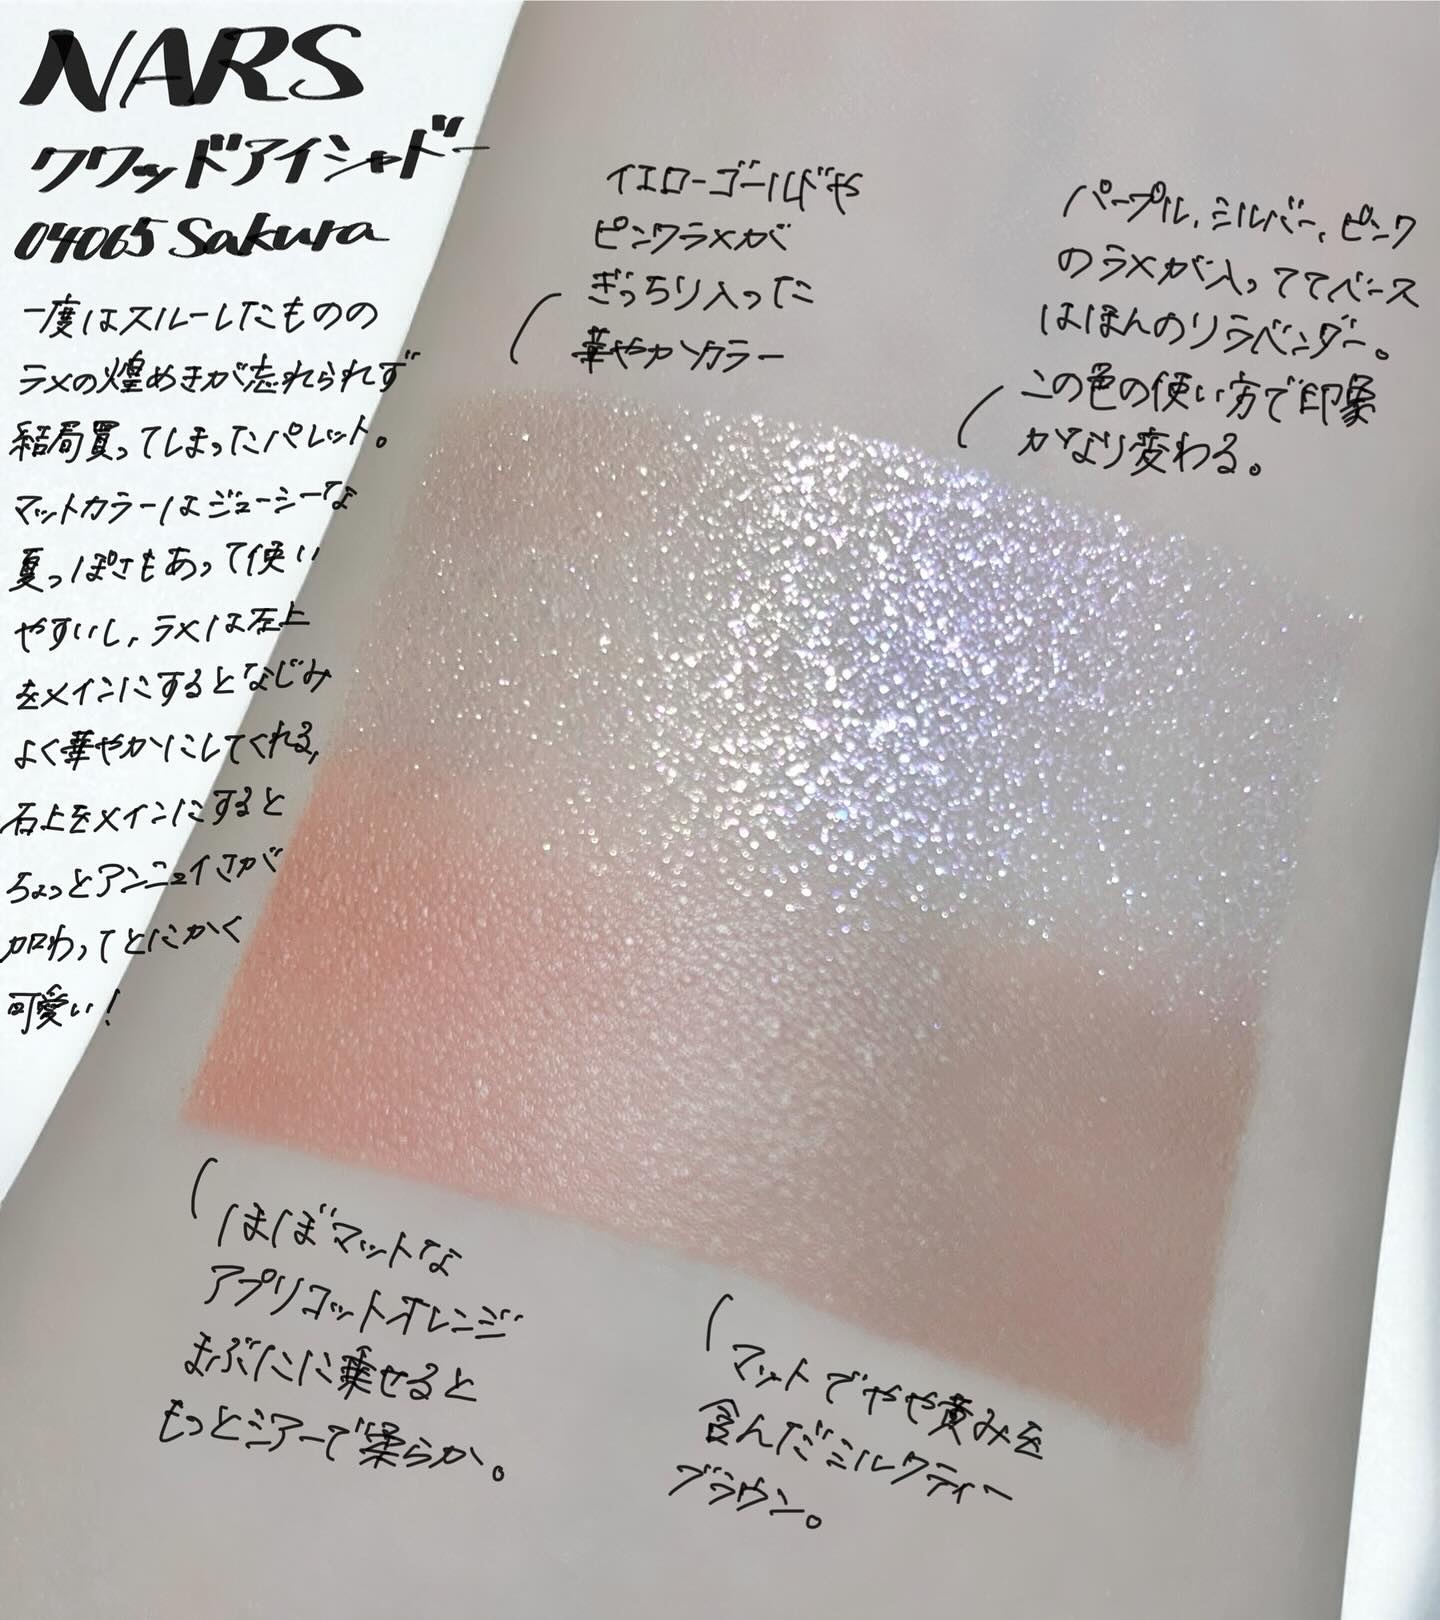 NARS
クワッドアイシャドー
04065 Sakura
一度はスルーしたものの
ラメの煌めきが忘れられず
結局買ってしまったパレット。
マットカラーはジューシーな
夏っぽさもあって使い
やすいし、ラメは左上
をメインにするとなじみ
よく華やかにしてくれる,
右上をメインにすると
ちょっとアンニュイさが
加わってとにかく
可愛い!
イエローゴールドや
ピンクラメが
ぎっちり入った
華やかカラー
パープル、シルバー、ピンク
のラメが入っててベース
はほんのりラベンダー。
この色の使い方で印象
がなり変わる。
ほぼマットな
アプリコットオレンジ
まぶたに乗せると
もっとシアーで柔らか。
マットでやや黄みを
含んだミルクティー
ブラウン。